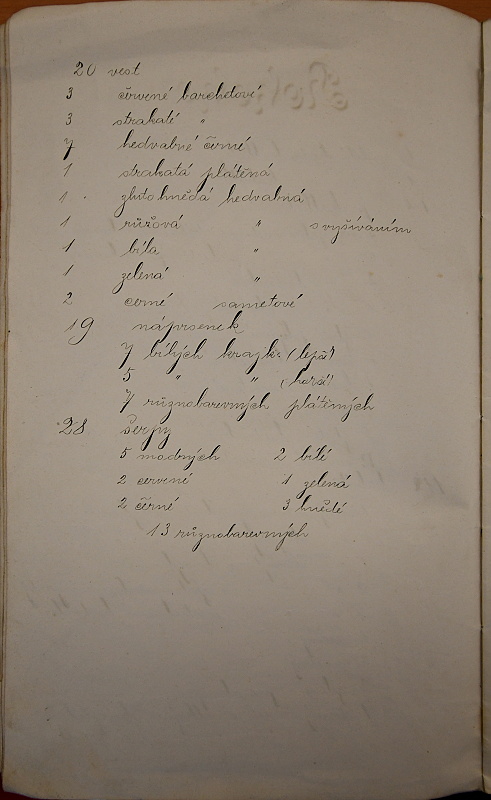 20 vest
3 červené barchetové
3 strakaté "
7 hedvabné černé
1 strakatá plátěná
1 žlutohnědá hedvabná
1 růžová " s vyšíváním
1 bíla "
1 zelená "
2 černé sametové
19 náprsenek
7 bílých krajk. (lepší)
5 " " (horší)
7 různobarevných plátěných
28 Šerpy
5 modrých 2 bílé
2 červené 1 zelená
2 černé 3 hnědé
13 různobarevných